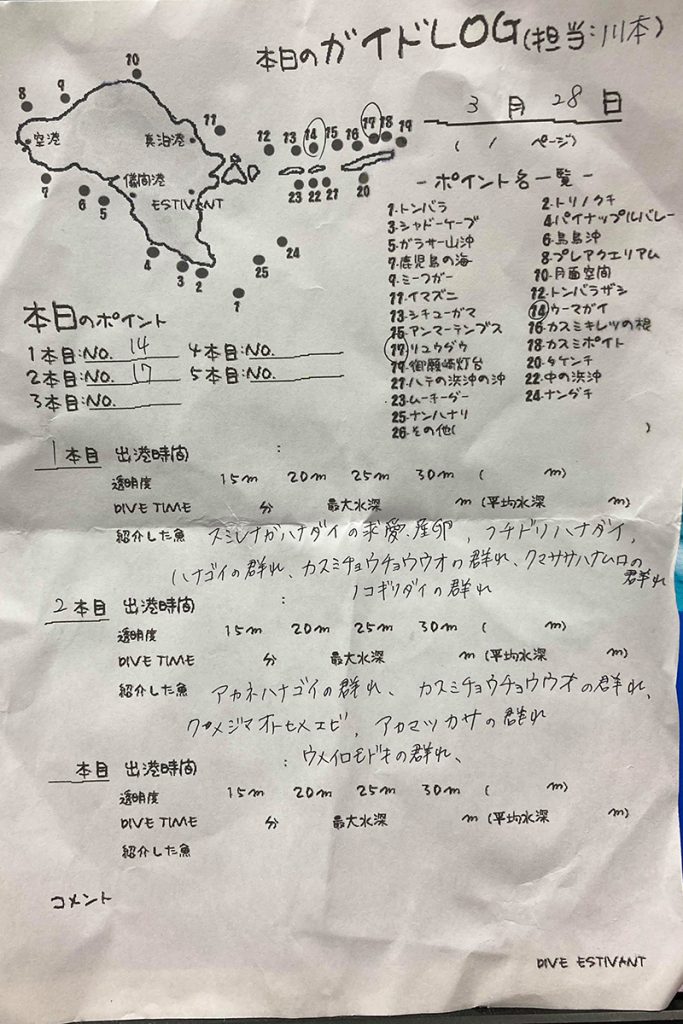 本日のガイドLOG(担当:川本)
3月28日
( 1 ページ)
10
9
8
空港
真泊港
11
儀間港
ESTIVANT
7
6
5
4
3
2
1
12 13 14 15 16 17 18 19
23 22 21 20
24
25
- ポイント名一覧 -
1.トンバラ 2.トリノクチ
3.シャドーケーブ 4.パイナップルバレー
5.ガラサー山沖 6.鳥島沖
7.鹿児島の海 8.プレアクエリアム
9.ミーフガー 10.月面空間
11.イマズニ 12.トンバラザシ
13.シチューガマ 14.ウーマガイ
15.アンマーテンブス 16.カスミキレツの根
17.リュウダウ 18.カスミポイト
19.御願崎灯台 20.タケンチ
21.ハテの浜沖の沖 22.中の浜沖
23.ムーチーグー 24.ナンダチ
25.ナンハナリ
26.その他( )
本日のポイント
1本目:NO. 14 4本目:NO.
2本目:NO. 17 5本目:NO.
3本目:NO.
1本目 出港時間 :
透明度 15m 20m 25m 30m ( m)
DIVE TIME 分 最大水深 m (平均水深 m)
紹介した魚 スミレナガハナダイの求愛、産卵, フチドリハナダイ,
ハナゴイの群れ、カスミチョウチョウウオの群れ、クマササハナムロの群れ
ノコギリダイの群れ
2本目 出港時間 :
透明度 15m 20m 25m 30m ( m)
DIVE TIME 分 最大水深 m (平均水深 m)
紹介した魚 アカネハナゴイの群れ、カスミチョウチョウウオの群れ、
クメジマオトヒメエビ, アカマツカサの群れ
ウメイロモドキの群れ、
本目 出港時間 :
透明度 15m 20m 25m 30m ( m)
DIVE TIME 分 最大水深 m (平均水深 m)
紹介した魚
コメント
DIVE ESTIVANT